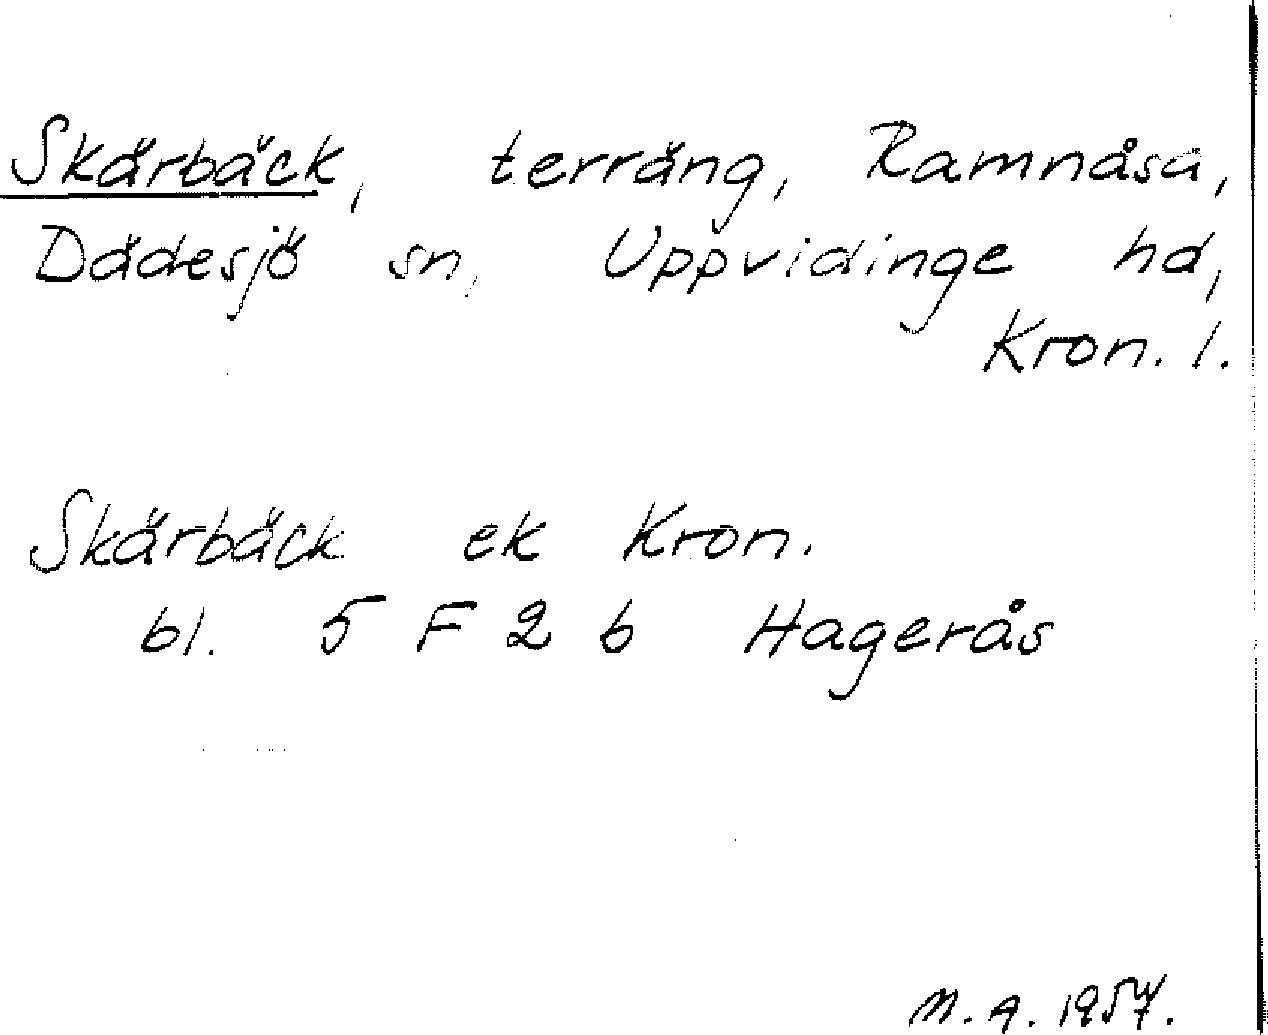 Skärbäck, terräng, Ramnåsa,
Dädesjö sn, Uppvidinge hd,
Kron. l.
Skärbäck ek Kron.
bl. 5 F 2 b Hagerås
M. A. 1957.